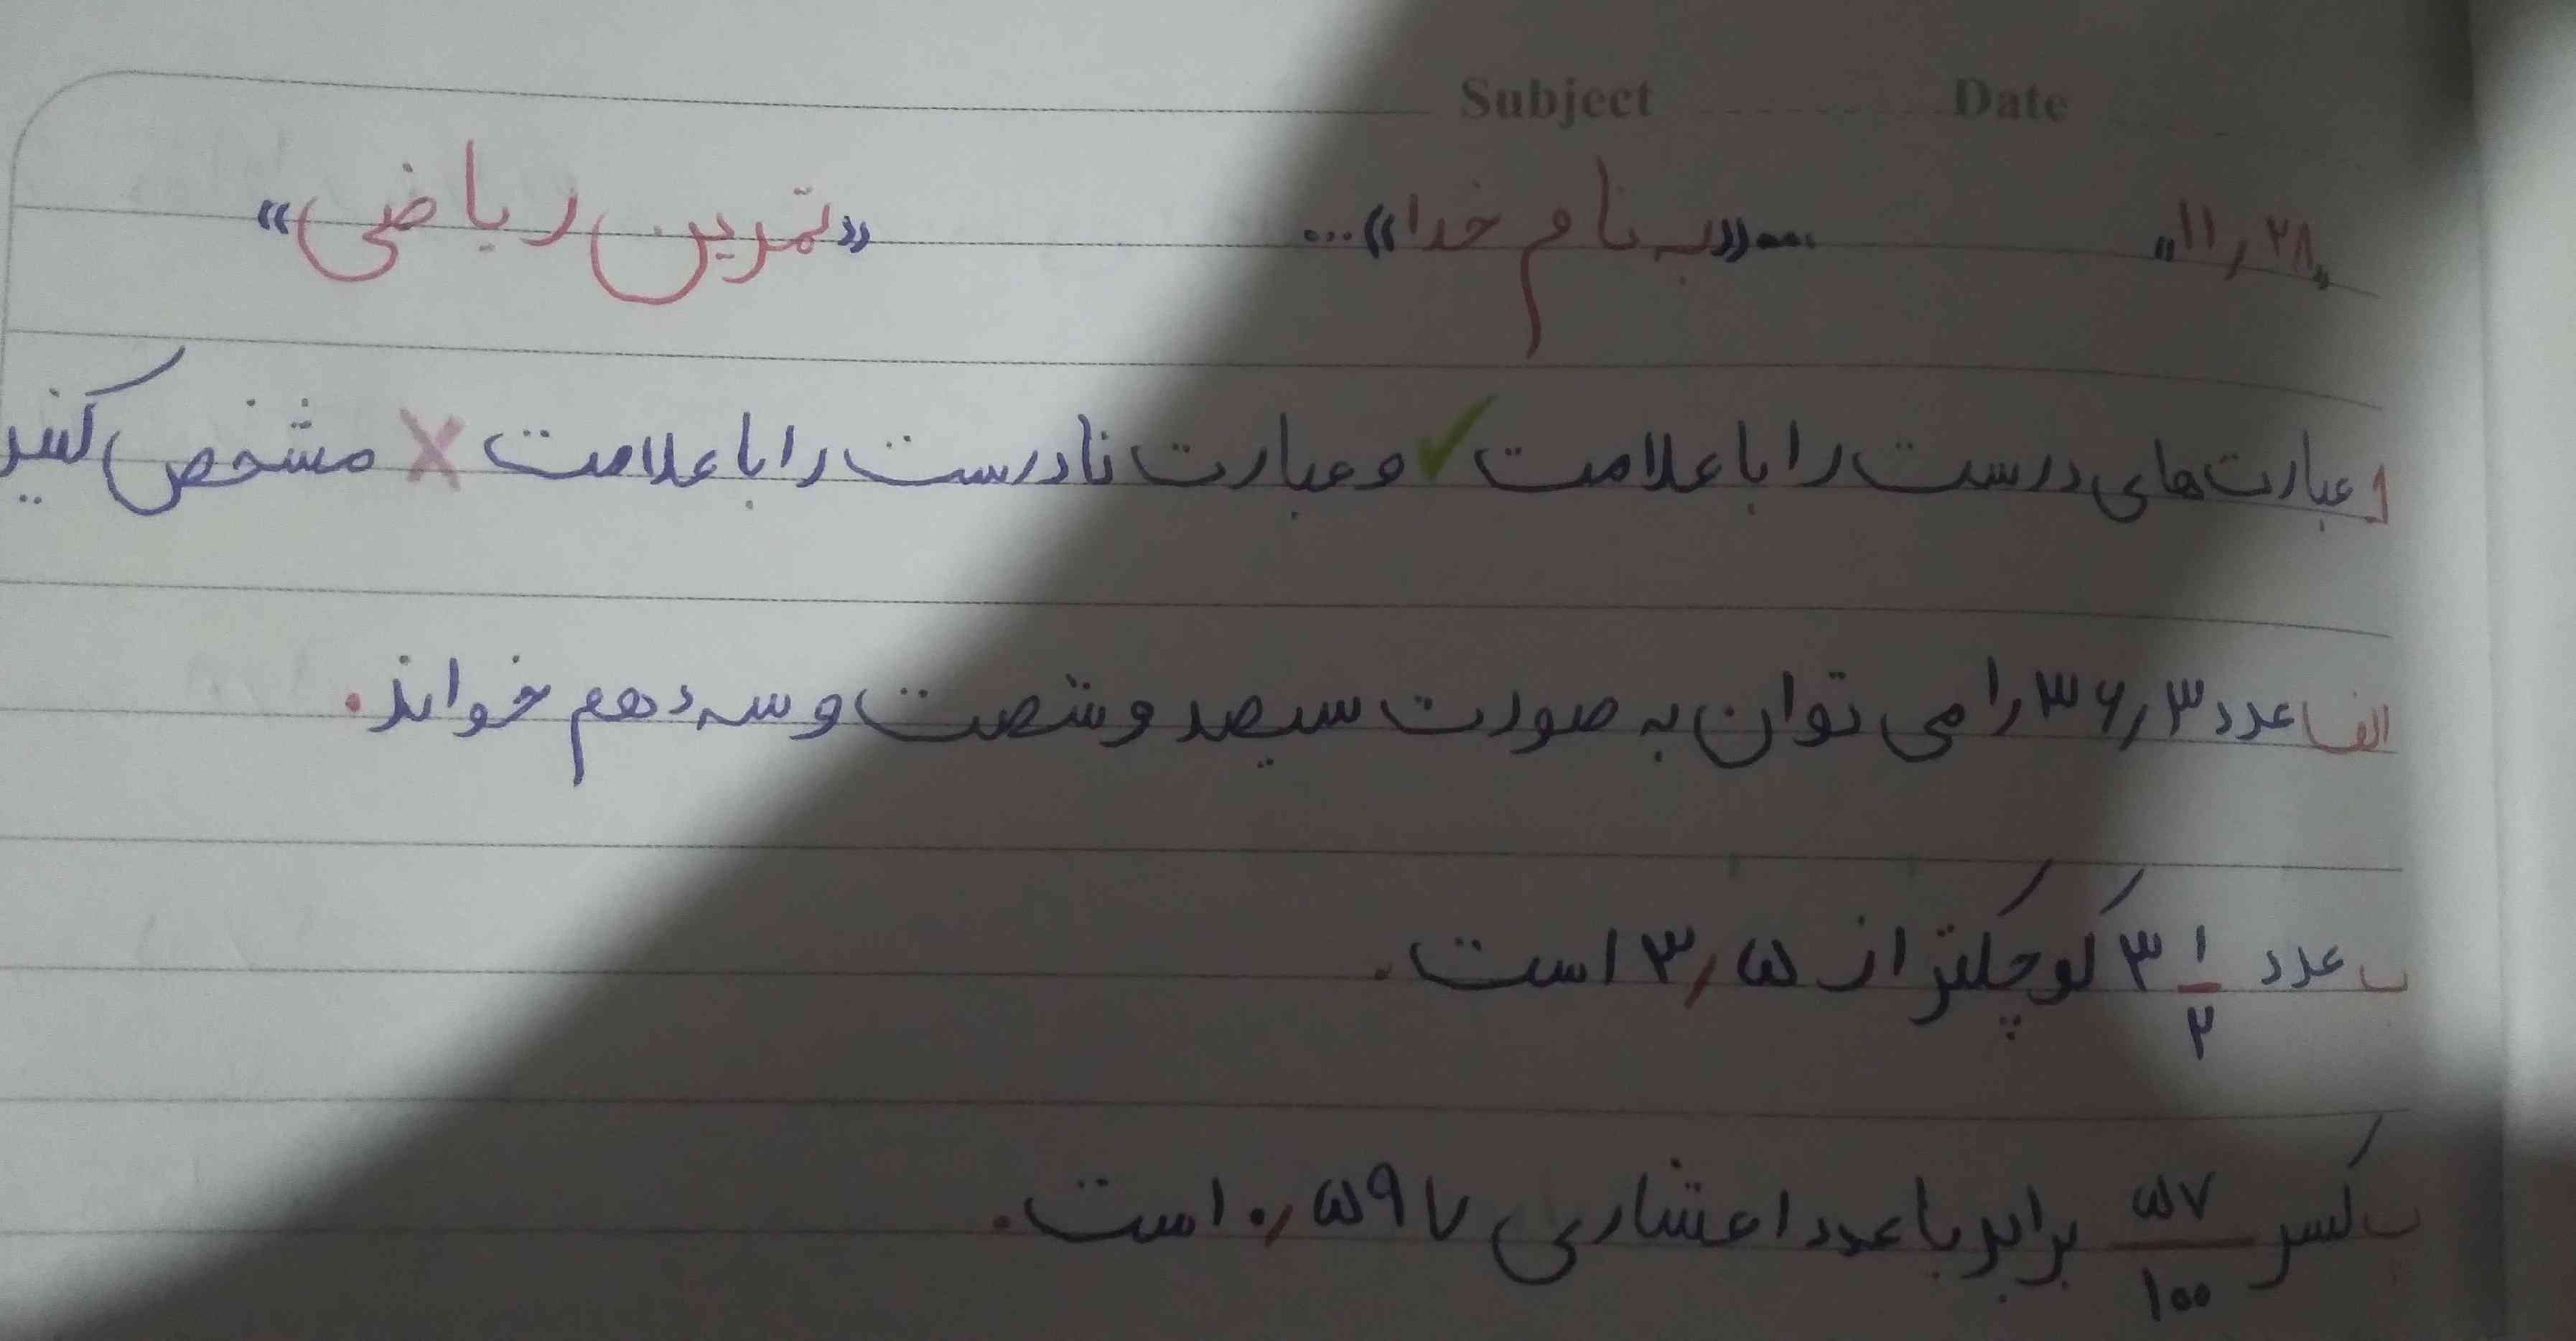 Subject Date
«۲۸٫۱۱» ...«به نام خدا»... «تمرین ریاضی»
۱ عبارت‌های درست را با علامت ✓ و عبارت نادرست را با علامت X مشخص کنید
الف عدد ۳۶٫۳ را می توان به صورت سیصد و شصت و سه دهم خواند.
ب عدد ۳ ۱/۲ کوچکتر از ۳٫۵ است.
پ کسر ۵۷/۱۰۰ برابر با عدد اعشاری ۰٫۵۹۷ است.